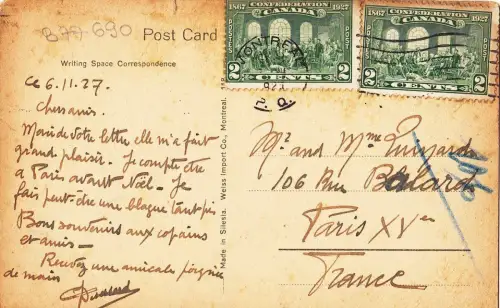 B77-690
Post Card
Writing Space Correspondence
1867 CONFEDERATION 1927
CANADA
POSTES POSTAGE
2 CENTS 2
1867 CONFEDERATION 1927
CANADA
2 CENTS 2
MONTREAL
P. Q.
Made in Silesia. Weiss Import Co., Montreal. 118
Ce 6.11.27.
Chers amis.
Merci de votre lettre elle m'a fait
grand plaisir. Je compte être
a Paris avant Noël - Je
fais peut être une blague tant pis
Bons souvenirs aux copains
et amis -
Recevez une amicale poignée
de main
Mr and Mme
106 Rue Balard
Paris XVem
France